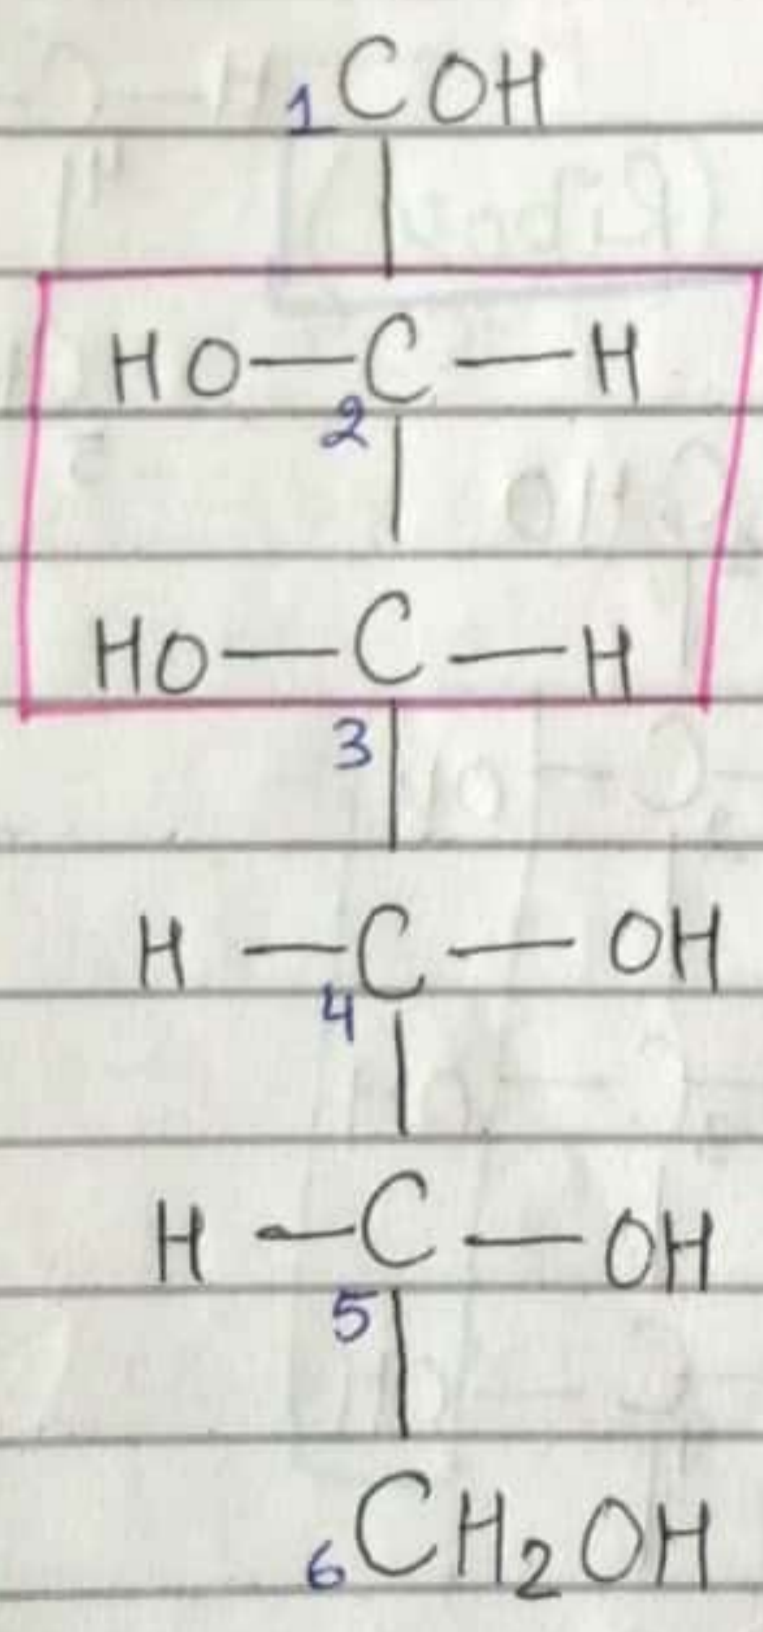 1 COH
HO—C—H
2
HO—C—H
3
H—C—OH
4
H—C—OH
5
6 CH₂OH